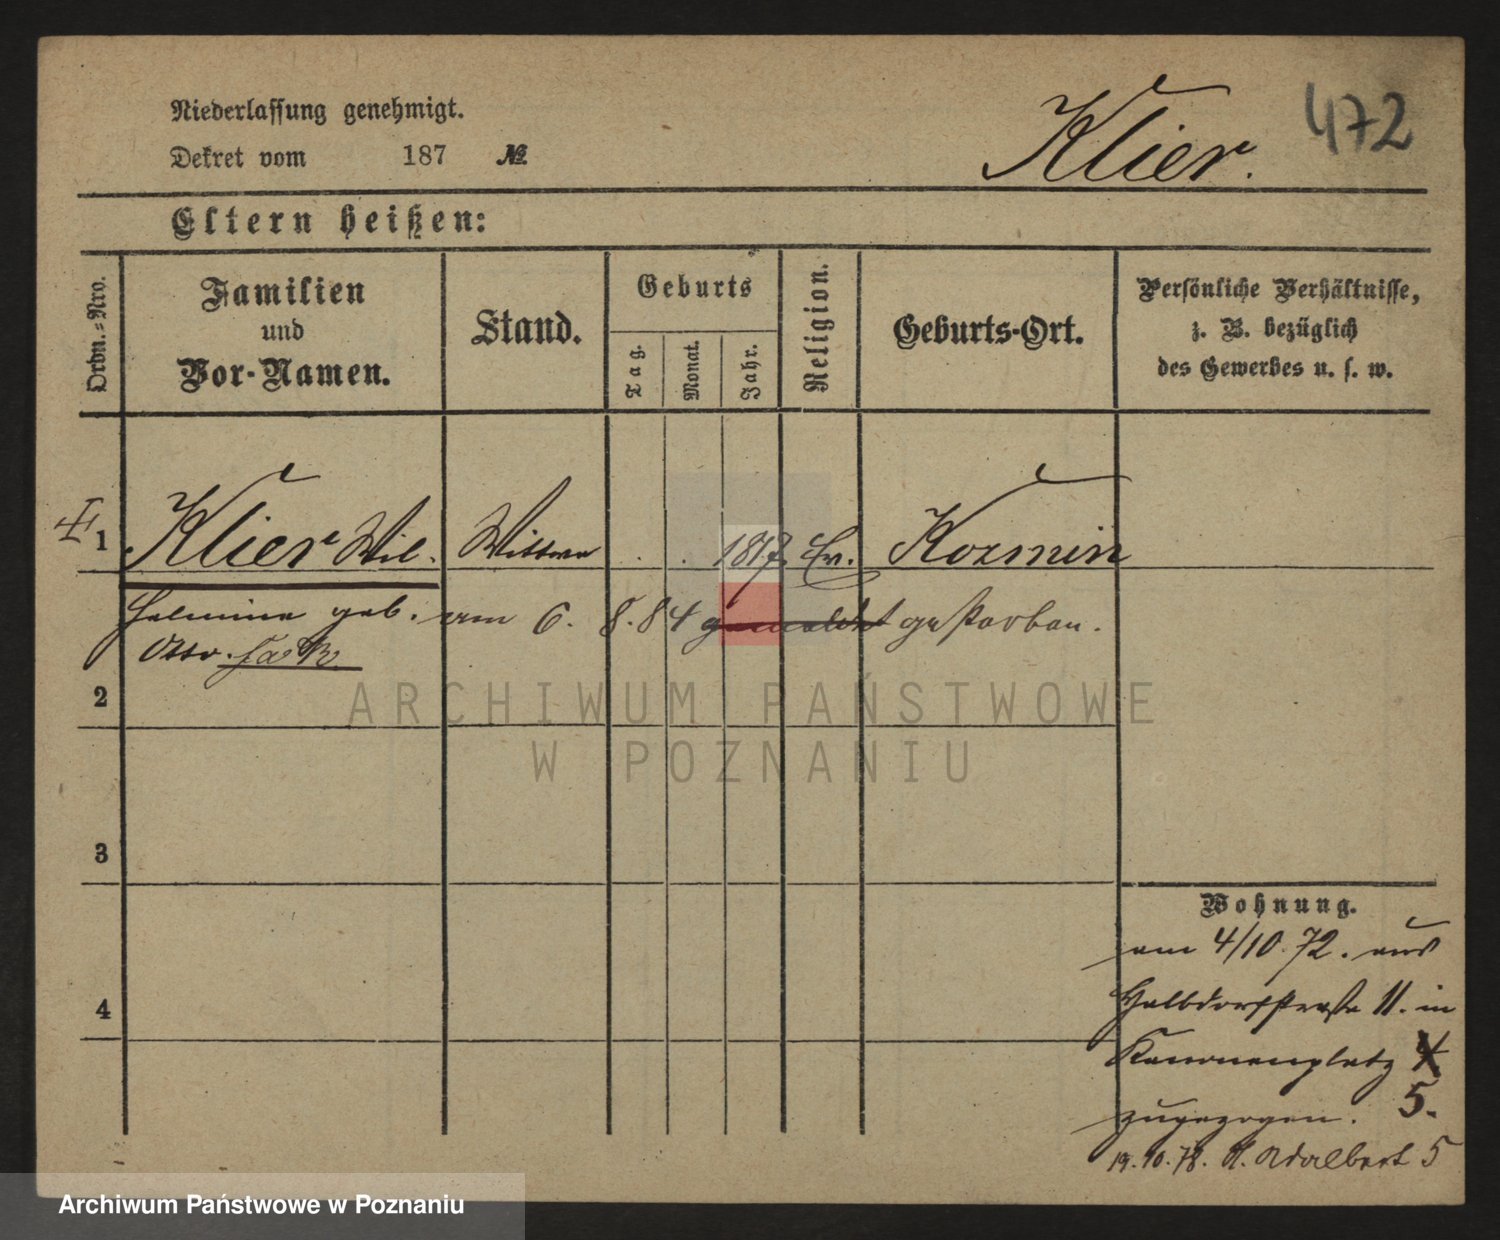 Niederlassung genehmigt.
Dekret vom 187 №
Klier.
472
Eltern heißen:
Ordn.=Nro.
Familien
und
Vor-Namen.
Stand.
Geburts
Tag.
Monat.
Jahr.
Religion.
Geburts-Ort.
Persönliche Verhältnisse,
z. B. bezüglich
des Gewerbes u. s. w.
1 Klier Wil- Wittwe . . 1817. Ev. Kozmin
helmine geb. am 6. 8. 84 gemeldet gestorben.
Otto.
2
3
4
Wohnung.
am 4/10.72. aus
Halbdorfstraße 11. in
Kanonenplatz 4
zugezogen. 5.
19.10.78. St. Adalbert 5
ARCHIWUM PAŃSTWOWE
W POZNANIU
Archiwum Państwowe w Poznaniu